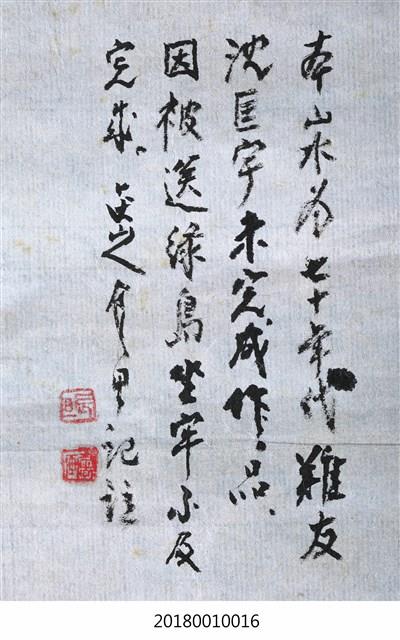 本山水為七十年代難友
沈匡宇未完成作品、
因被送綠島坐牢不及
完成。
記註
20180010016